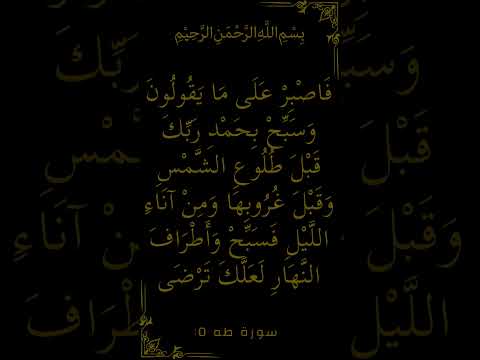 بِسْمِ اللَّهِ الرَّحْمَنِ الرَّحِيْمِ
فَاصْبِرْ عَلَى مَا يَقُولُونَ
وَسَبِّحْ بِحَمْدِ رَبِّكَ
قَبْلَ طُلُوعِ الشَّمْسِ
وَقَبْلَ غُرُوبِهَا وَمِنْ آنَاءِ
اللَّيْلِ فَسَبِّحْ وَأَطْرَافَ
النَّهَارِ لَعَلَّكَ تَرْضَى
سورة طه ١٥